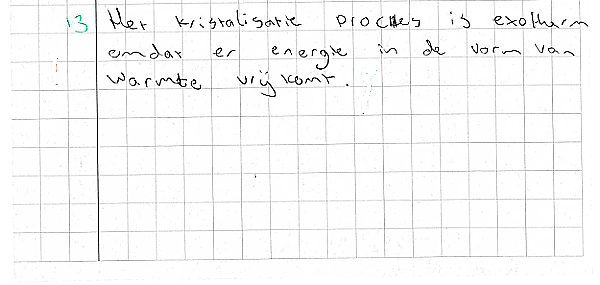 13 Het kristalisatie proces is exotherm
omdat er energie in de vorm van
warmte vrij komt.